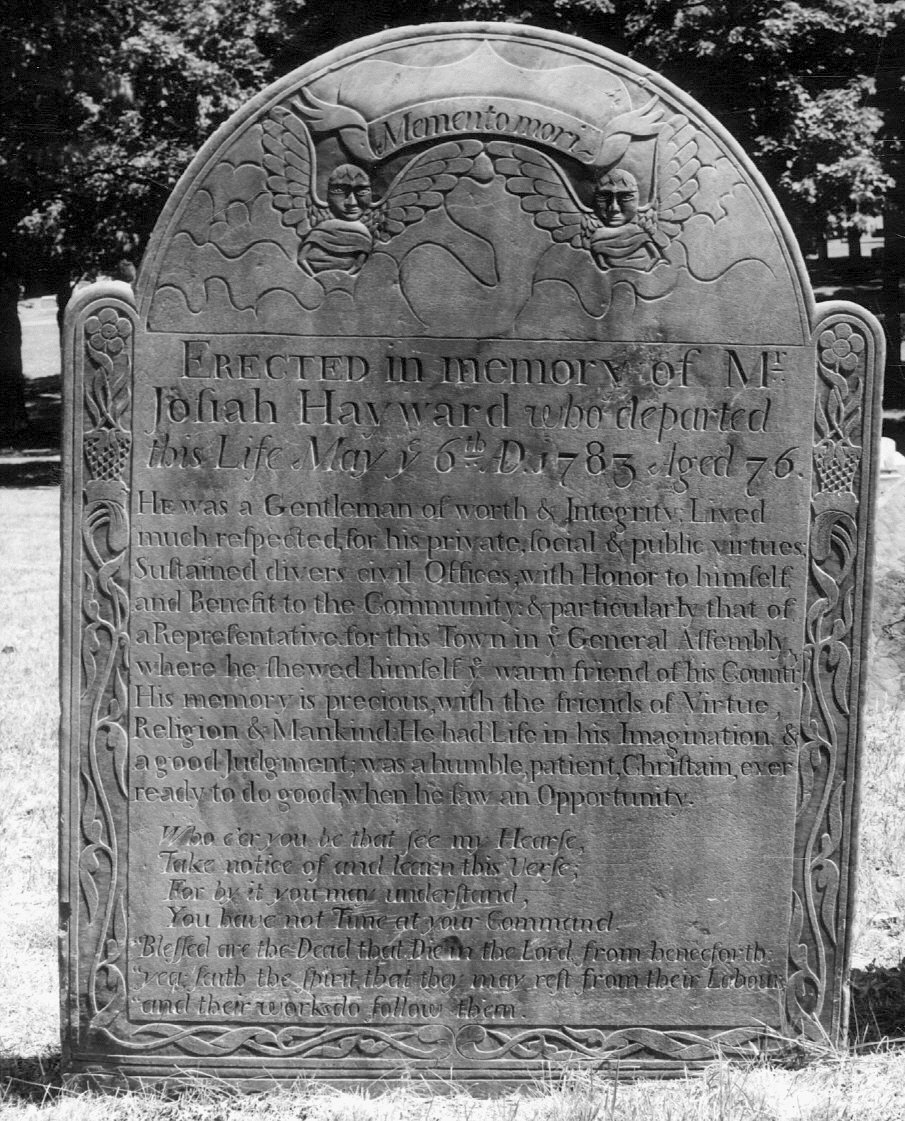 Memento mori
ERECTED in memory of Mr.
Joſiah Hayward who departed
this Life May ye 6th. A.D. 1783. Aged 76.
HE was a Gentleman of worth & Integrity, Lived
much reſpected, for his private, ſocial & public virtues,
Suſtained divers civil Offices, with Honor to himſelf
and Benefit to the Community; & particularly that of
a Repreſentative for this Town in ye General Aſſembly,
where he ſhewed himſelf ye warm friend of his Countr
His memory is precious, with the friends of Virtue,
Religion & Mankind. He had Life in his Imagination, &
a good Judgment; was a humble, patient, Chriſtain, ever
ready to do good, when he ſaw an Opportunity.
Who e'er you be that ſee my Hearſe,
Take notice of and learn this Verſe;
For by it you may underſtand,
You have not Time at your Command.
"Bleſſed are the Dead that Die in the Lord, from henceforth:
"yea, ſaith the ſpirit, that they may reſt from their Labour
"and their works do follow them.